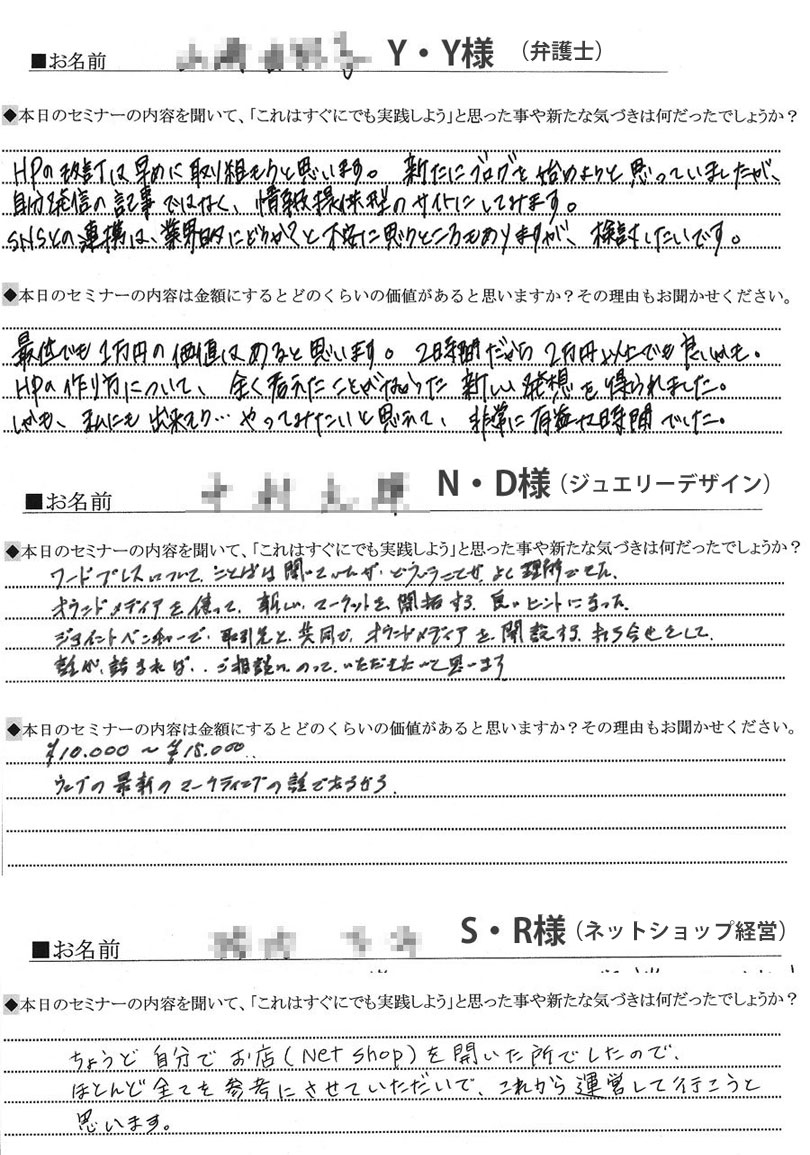 ■お名前 Y・Y様（弁護士）
◆本日のセミナーの内容を聞いて、「これはすぐにでも実践しよう」と思った事や新たな気づきは何だったでしょうか？
HPの改訂は早めに取り組もうと思います。新たにブログを始めようと思っていましたが、
自分発信の記事ではなく、情報提供型のサイトにしてみます。
SNSとの連携は、業界的にどうか？と不安に思うところもありますが、検討したいです。
◆本日のセミナーの内容は金額にするとどのくらいの価値があると思いますか？その理由もお聞かせください。
最低でも1万円の価値はあると思います。2時間だから2万円以上でも良いかも。
HPの作り方について、全く考えたことがなかった新しい発想を得られました。
しかも、私にも出来そう…やってみたいと思えて、非常に有益な時間でした。
■お名前 N・D様（ジュエリーデザイン）
◆本日のセミナーの内容を聞いて、「これはすぐにでも実践しよう」と思った事や新たな気づきは何だったでしょうか？
ワードプレスについて、ことばは聞いていたが、どういうことか、よく理解できた。
オウンドメディアを使って、新しいマーケットを開拓する、良いヒントになった。
ジョイントベンチャーで、取引先と共同で、オウンドメディアを開設する、打ち合せをして、
話が、詰まれば、ご相談に、のって、いただきたいと思います
◆本日のセミナーの内容は金額にするとどのくらいの価値があると思いますか？その理由もお聞かせください。
¥10.000～¥15.000
ウェブの最新のマーケティングの話であるから、
■お名前 S・R様（ネットショップ経営）
◆本日のセミナーの内容を聞いて、「これはすぐにでも実践しよう」と思った事や新たな気づきは何だったでしょうか？
ちょうど自分でお店(Net shop)を開いた所でしたので、
ほとんど全てを参考にさせていただいで、これから運営して行こうと
思います。